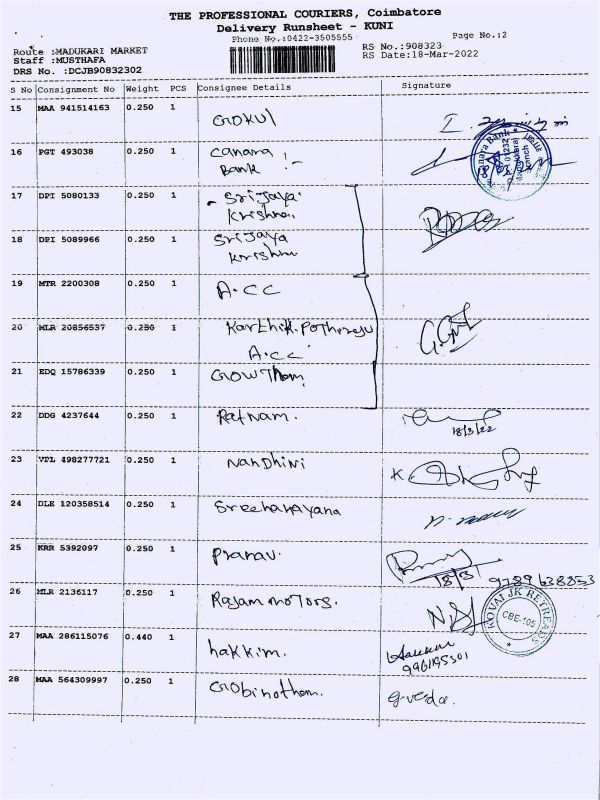 THE PROFESSIONAL COURIERS, Coimbatore
Delivery Runsheet - KUNI
Phone No.:0422-3505555
Page No.:2
Route :MADUKARI MARKET
Staff :MUSTHAFA
DRS No. :DCJB90832302
RS No.:908323
RS Date:18-Mar-2022
S No Consignment No Weight PCS Consignee Details Signature
15 MAA 941514163 0.250 1 Gokul
16 PGT 493038 0.250 1 Canara
Bank
17 DPI 5080133 0.250 1 Srijaya
Krishna
18 DPI 5089966 0.250 1 Srijaya
Krishna
19 MTR 2200308 0.250 1 A.CC
20 MLR 20856537 0.250 1 Karthik.Pothiraju
A.CC
21 EDQ 15786339 0.250 1 Gowtham
22 DDG 4237644 0.250 1 Ratnam.
18/3/22
23 VTL 498277721 0.250 1 Nandhini
24 DLE 120358514 0.250 1 Sreehanayana
25 KRR 5392097 0.250 1 Pranav.
18/3 9789638853
26 MLR 2136117 0.250 1 Rajam motors.
KOVAI JK RETREADS
CBE-105
27 MAA 286115076 0.440 1 hakkim.
28 MAA 564309997 0.250 1 Gobinatham.